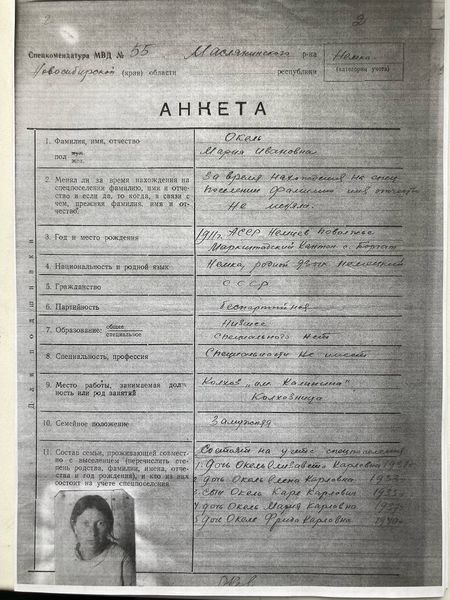 2
2
Спецкомендатура МВД № 55 Маслянинского р-на
Новосибирской (край) области республики
Немка
(категория учета)
АНКЕТА
Для подшивки
1. Фамилия, имя, отчество
пол муж. жен.
Околь
Мария Ивановна
2. Менял ли за время нахождения на
спецпоселении фамилию, имя и отче-
ство и если да, то когда, в связи с
чем, прежняя фамилия, имя и от-
чество.
За время нахождения на спец
поселении фамилию имя отчество
Не меняли.
3. Год и место рождения
1911г. АССР Немцев Поволжье
Маркштадский Кантон с.
4. Национальность и родной язык
Немка, родной язык немецкий
5. Гражданство
СССР
6. Партийность
беспартийная
7. Образование: общее специальное
Низшее
специального нет
8. Специальность, профессия
Специальности не имеет
9. Место работы, занимаемая дол-
жность или род занятий
Колхоз "им Калинина"
Колхозница
10. Семейное положение
Замужняя
11. Состав семьи, проживающей совмест-
но с выселенцем (перечислить сте-
пень родства, фамилии, имена, отчества
и год рождения), и кто из них
состоит на учете спецпоселения
Состоят на учете спецпоселения
1. дочь Околь Елизавета Карловна
2 дочь Околь Елена Карловна
3. сын Околь Карл Карлович
4 дочь Околь Мария Карловна
5 дочь Околь Фрида Карловна